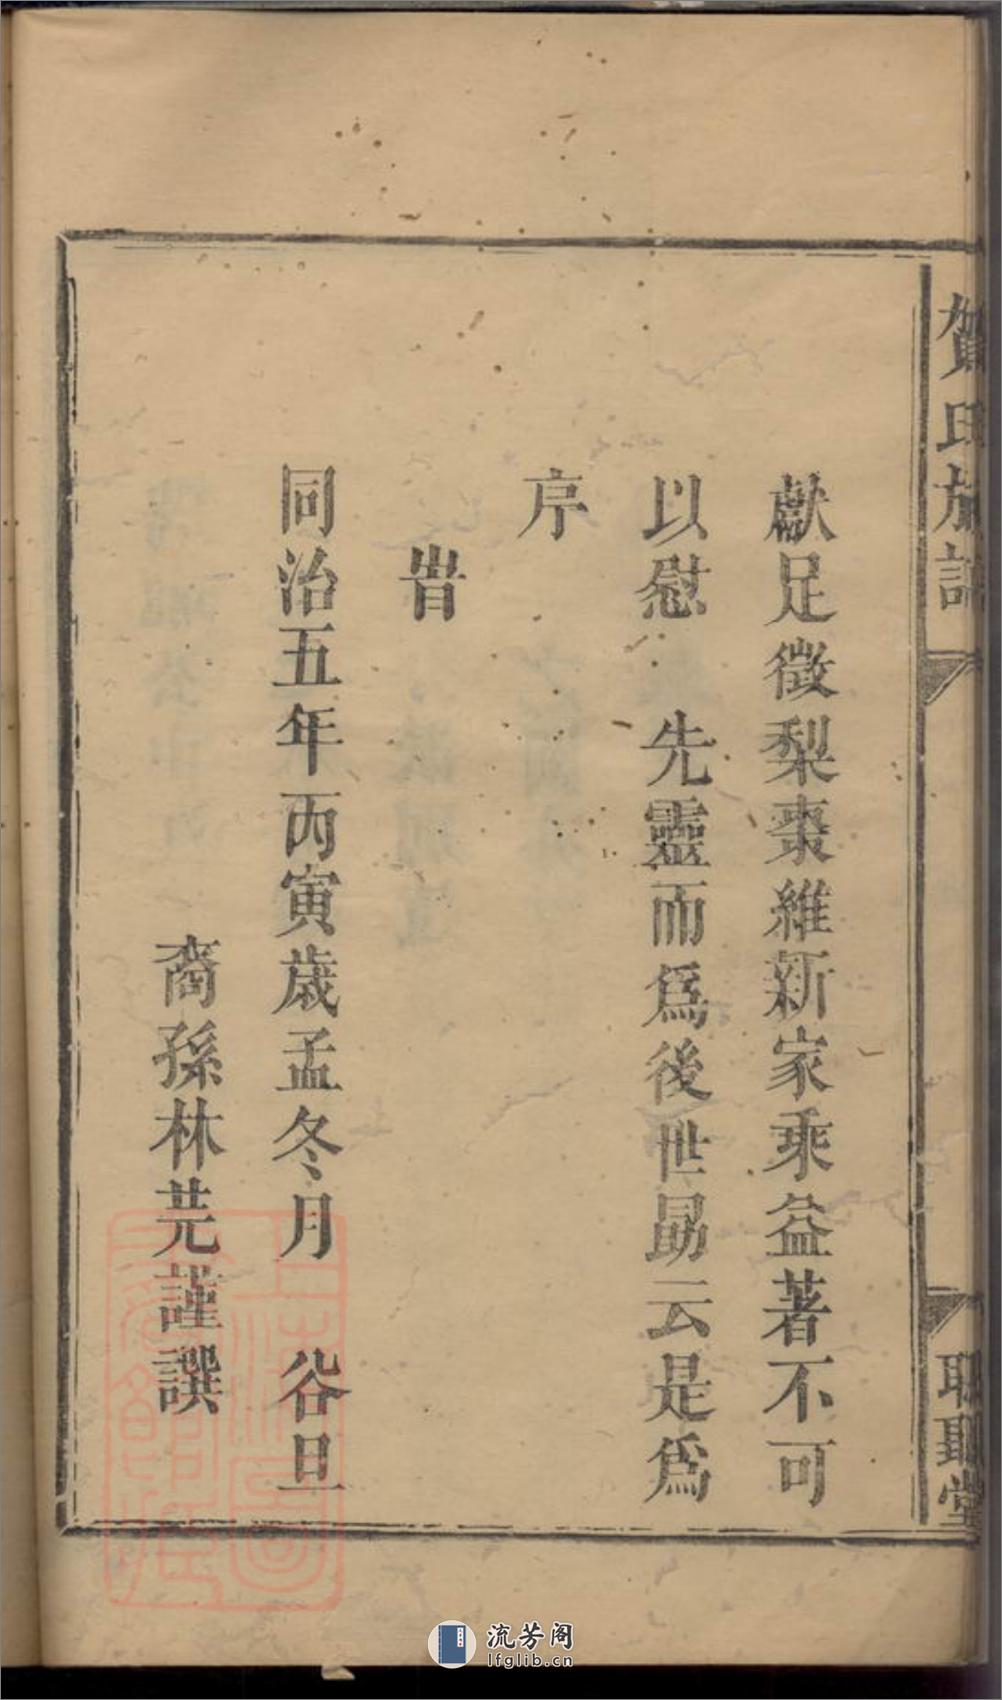 賀氏族譜
堂
獻足徵梨棗維新家乘益著不可
以慰 先靈而爲後世勗云是爲
序
旹
同治五年丙寅歲孟冬月 谷旦
裔孫林芫謹譔
流芳阁
lfglib.cn